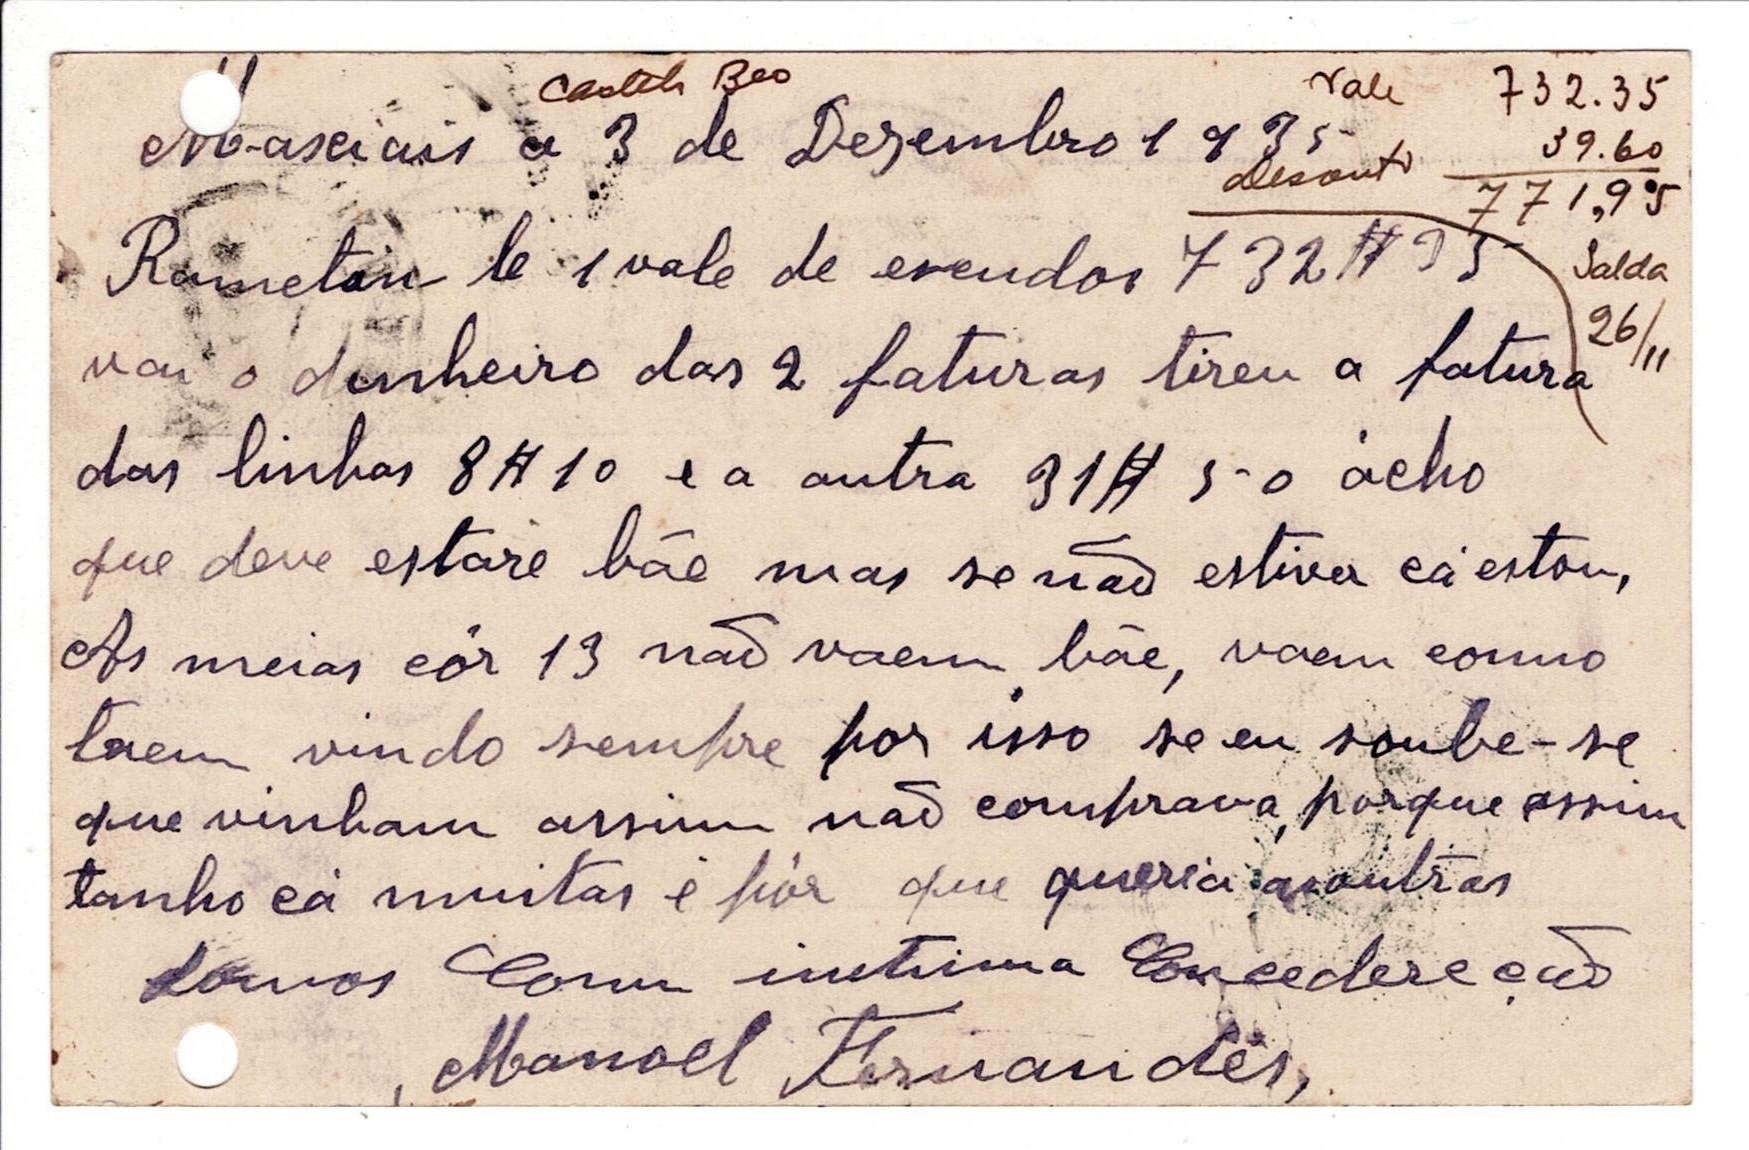 Castelo Bco
Vale 732.35
39.60
Maxiais a 3 de Dezembro 1935
desconto
771,95
Rameton le 1 vale de escudos 732#35
Salda
26/11
vai o dinheiro das 2 faturas tireu a fatura
das linhas 8#10 e a outra 31#50 ácho
que deve estare bãe mas se não estiver cá estou,
As meias côr 13 não vaem bãe, vaem como
taem vindo sempre por isso se eu soube-se
que vinham assim não comprava, porque assim
tanho cá muitas é pór que queria as outras
Somos Com instima Concedereção
Manoel Fernandes,